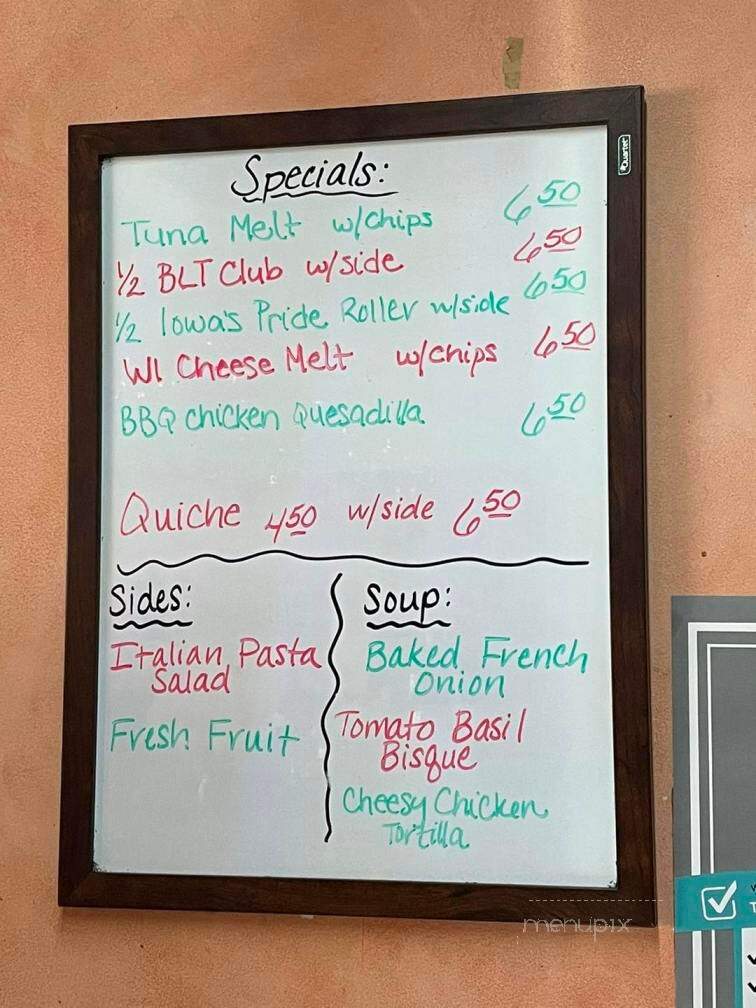 Quartet
Specials:
Tuna Melt w/chips 6 50
1/2 BLT Club w/side 6 50
1/2 Iowa's Pride Roller w/side 6 50
WI Cheese Melt w/chips 6 50
BBQ chicken Quesadilla 6 50
Quiche 4 50 w/side 6 50
Sides:
Italian Pasta
Salad
Fresh Fruit
Soup:
Baked French
Onion
Tomato Basil
Bisque
Cheesy Chicken
Tortilla
menupix